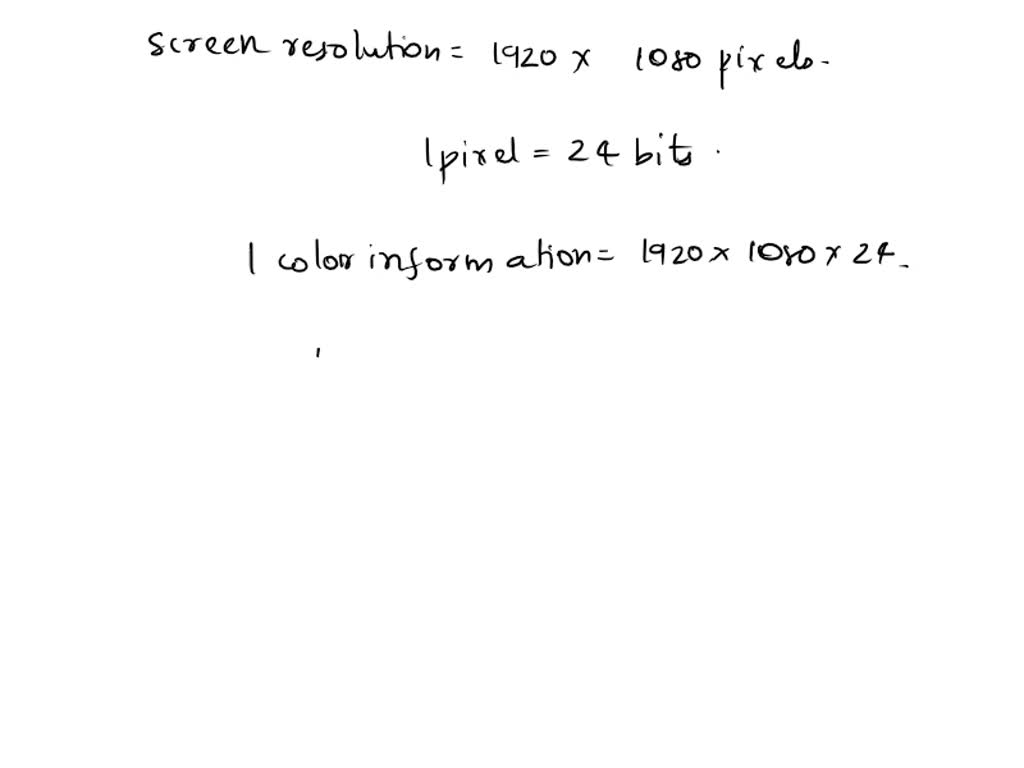 screen resolution = 1920 x 1080 pixels.
1 pixel = 24 bits .
1 color information = 1920 x 1080 x 24.